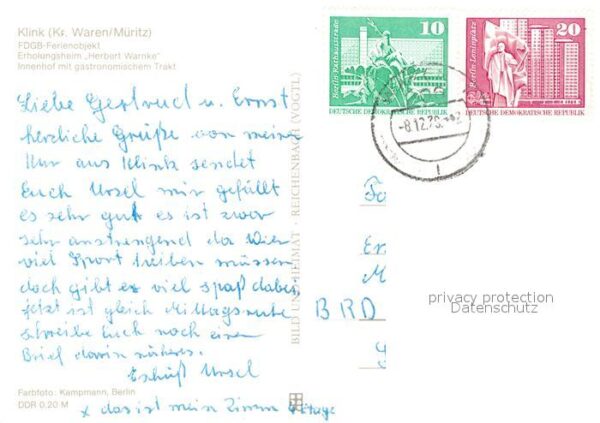 Klink (Kr. Waren/Müritz)
FDGB-Ferienobjekt
Erholungsheim „Herbert Warnke"
Innenhof mit gastronomischem Trakt
Liebe Gertrud u. Ernst
herzliche Grüße von meiner
Kur aus Klink sendet
Euch Ursel mir gefällt
es sehr gut es ist zwar
sehr anstrengend da wir
viel Sport treiben müssen
doch gibt es viel spaß dabei
jetzt ist gleich Mittagsruhe
schreibe Euch noch einen
Brief darin näheres.
Ursel
Farbfoto: Kampmann, Berlin
DDR 0,20 M
x das ist mein Zimmer Etage
BILD UND HEIMAT · REICHENBACH (VOGTL)
10
Berlin-Rathausstrasse
DEUTSCHE DEMOKRATISCHE REPUBLIK
20
Berlin-Leninplatz
DEUTSCHE DEMOKRATISCHE REPUBLIK
-8.12.76
BRD
privacy protection
Datenschutz